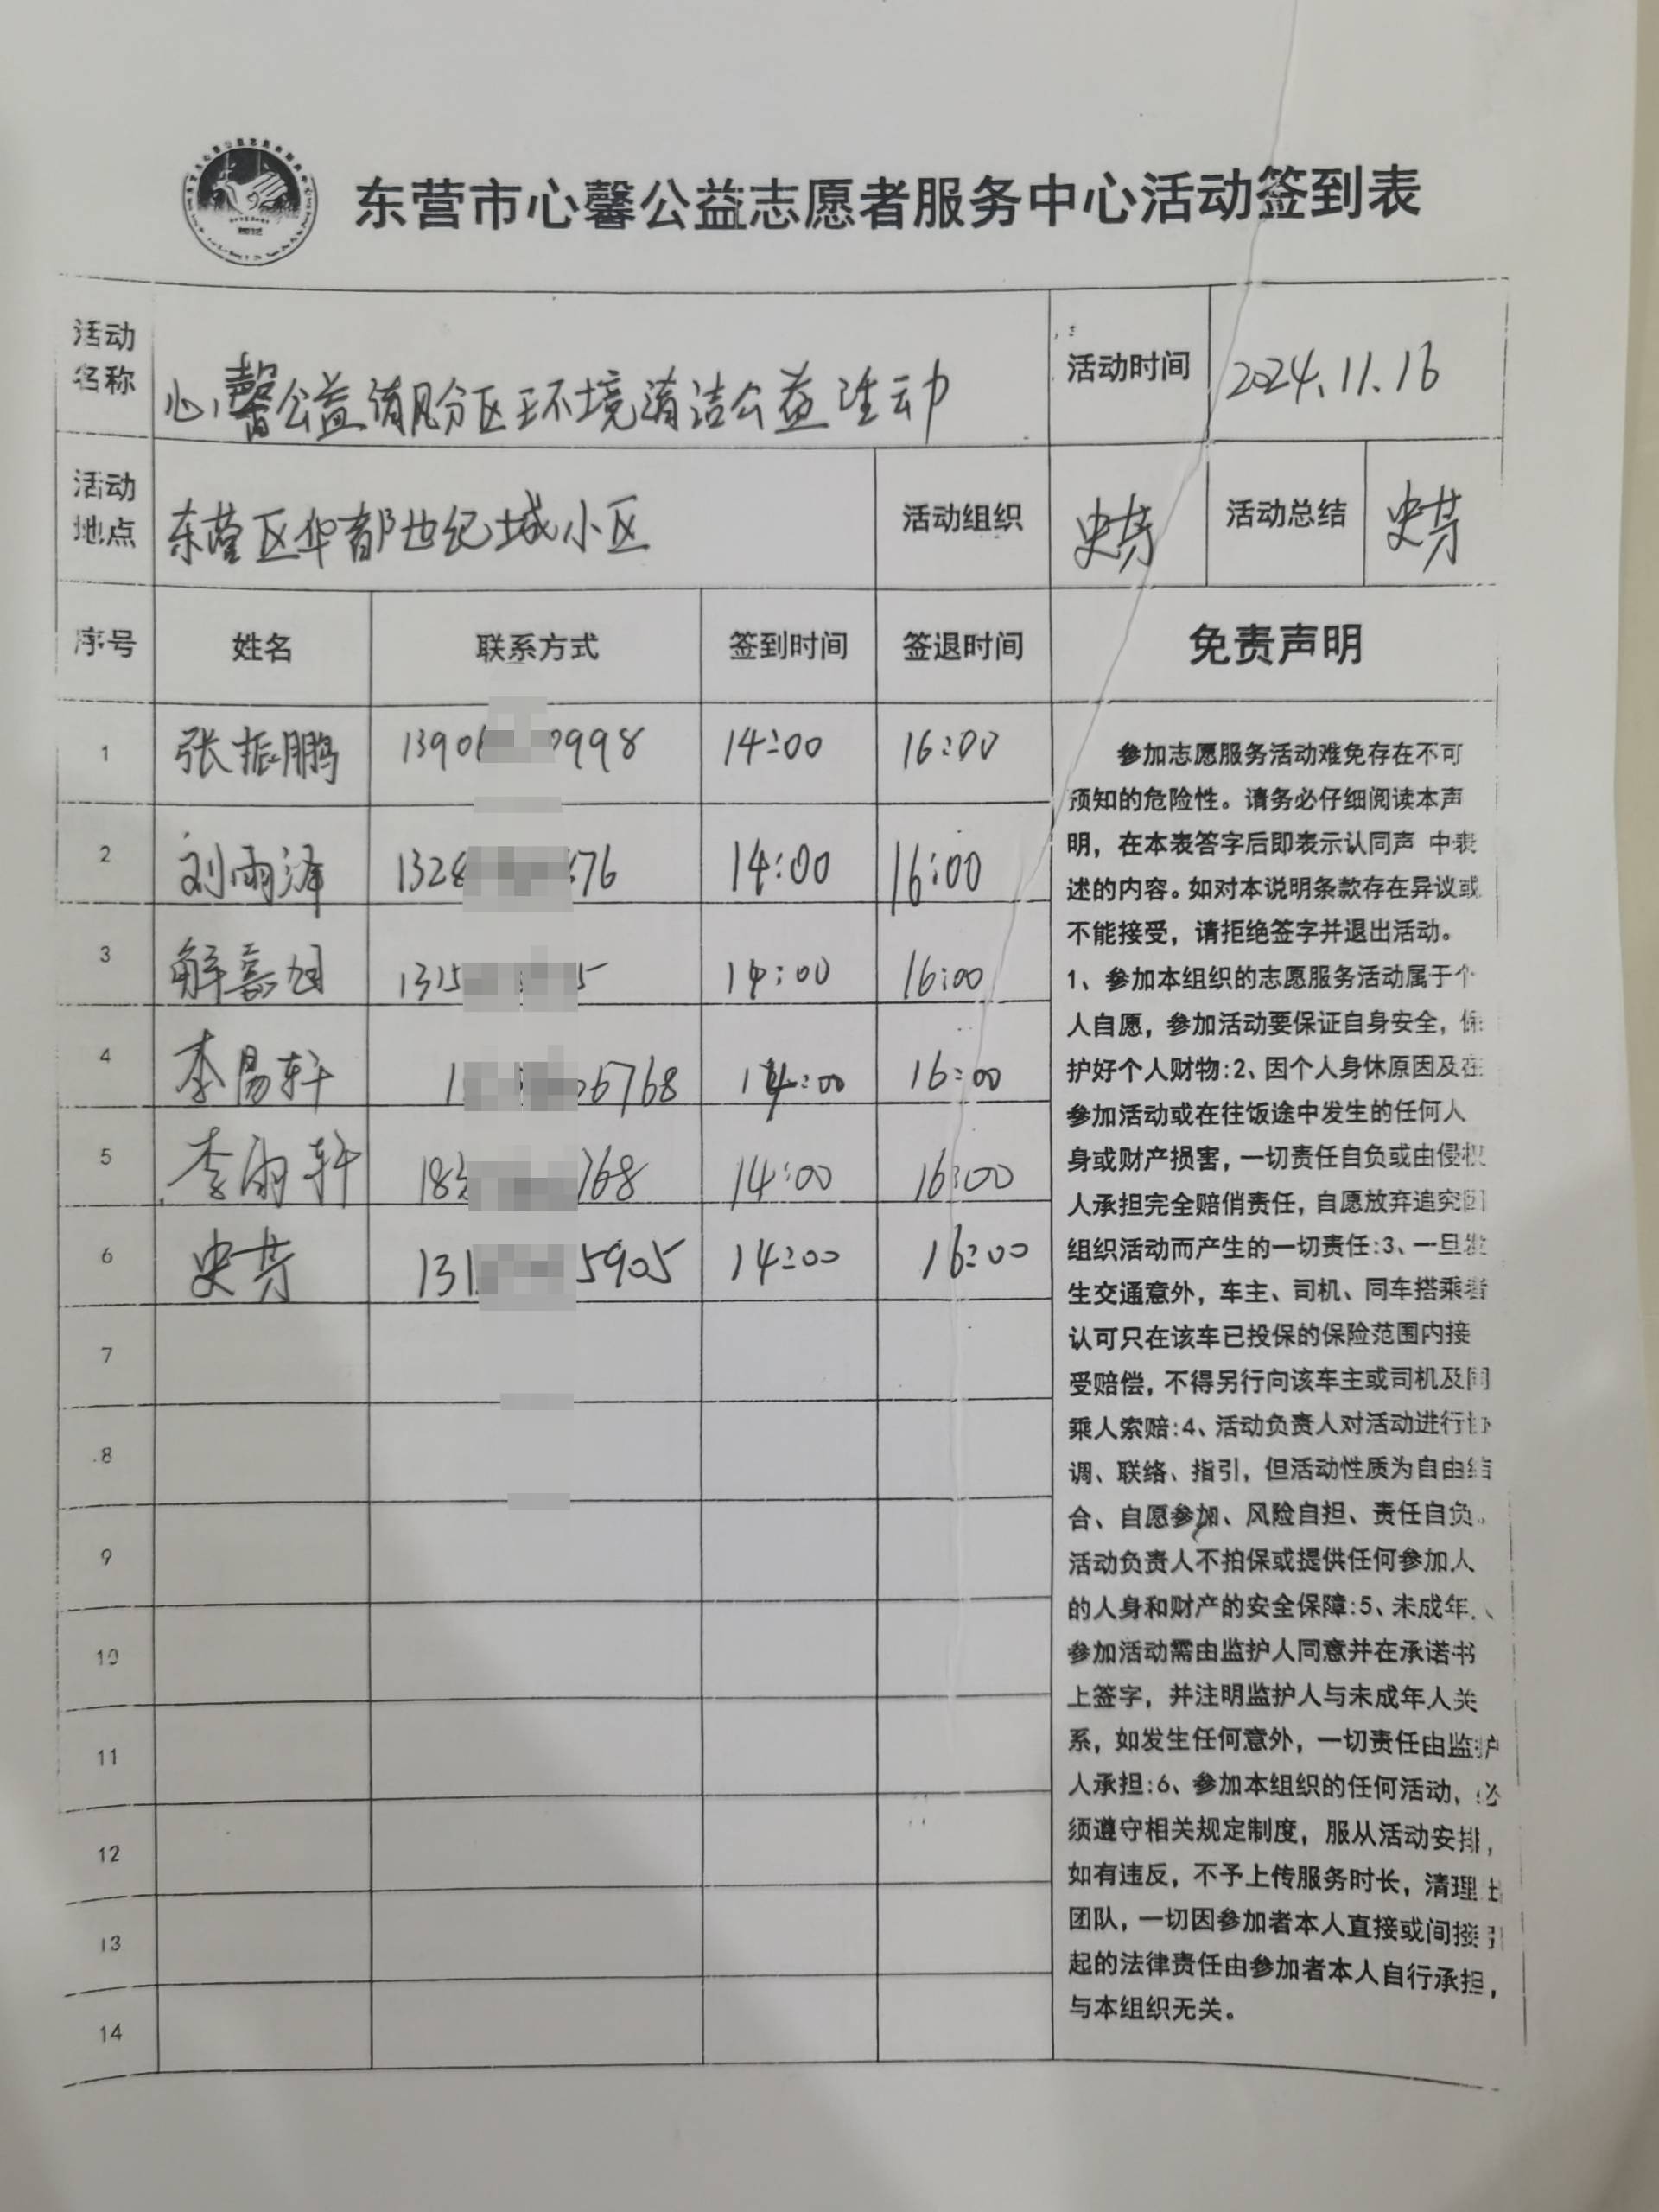 东营市心馨公益志愿者服务中心活动签到表
活动名称 心馨公益清风分区环境清洁公益活动 活动时间 2024.11.16
活动地点 东营区华都世纪城小区 活动组织 史芳 活动总结 史芳
序号 姓名 联系方式 签到时间 签退时间 免责声明
1 张振鹏 1390 9998 14:00 16:00
2 刘雨泽 1328 76 14:00 16:00
3 解嘉旭 1315 5 14:00 16:00
4 李易轩 1 6768 14:00 16:00
5 李雨轩 18 768 14:00 16:00
6 史芳 131 5905 14:00 16:00
7
8
9
10
11
12
13
14
参加志愿服务活动难免存在不可
预知的危险性。请务必仔细阅读本声
明，在本表答字后即表示认同声 中表
述的内容。如对本说明条款存在异议或
不能接受，请拒绝签字并退出活动。
1、参加本组织的志愿服务活动属于个
人自愿，参加活动要保证自身安全，保
护好个人财物:2、因个人身休原因及在
参加活动或在往饭途中发生的任何人
身或财产损害，一切责任自负或由侵权
人承担完全赔俏责任，自愿放弃追究因
组织活动而产生的一切责任:3、一旦发
生交通意外，车主、司机、同车搭乘者
认可只在该车已投保的保险范围内接
受赔偿，不得另行向该车主或司机及同
乘人索赔:4、活动负责人对活动进行协
调、联络、指引，但活动性质为自由结
合、自愿参加、风险自担、责任自负。
活动负责人不拍保或提供任何参加人
的人身和财产的安全保障:5、未成年人
参加活动需由监护人同意并在承诺书
上签字，并注明监护人与未成年人关
系，如发生任何意外，一切责任由监护
人承担:6、参加本组织的任何活动，必
须遵守相关规定制度，服从活动安排，
如有违反，不予上传服务时长，清理出
团队，一切因参加者本人直接或间接引
起的法律责任由参加者本人自行承担，
与本组织无关。